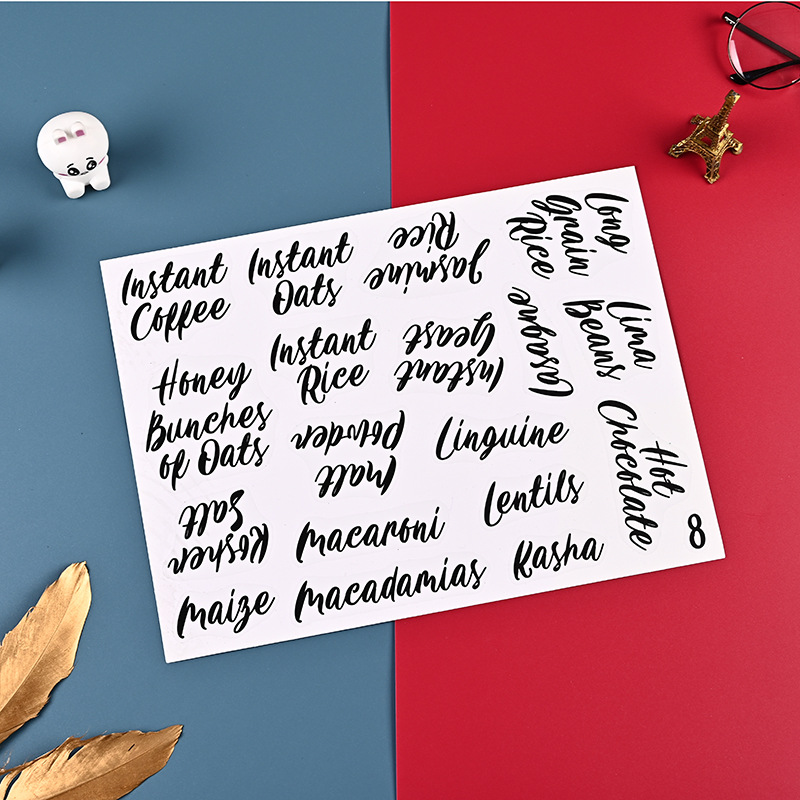 Instant
Coffee
Instant
Oats
Jasmine
Rice
Long
Grain
Rice
Honey
Bunches
of Oats
Instant
Rice
Instant
Yeast
Lasagne
Lima
Beans
Malt
Powder
Linguine
Hot
Chocolate
Kosher
Salt
Macaroni
Lentils
Maize
Macadamias
Kasha
8